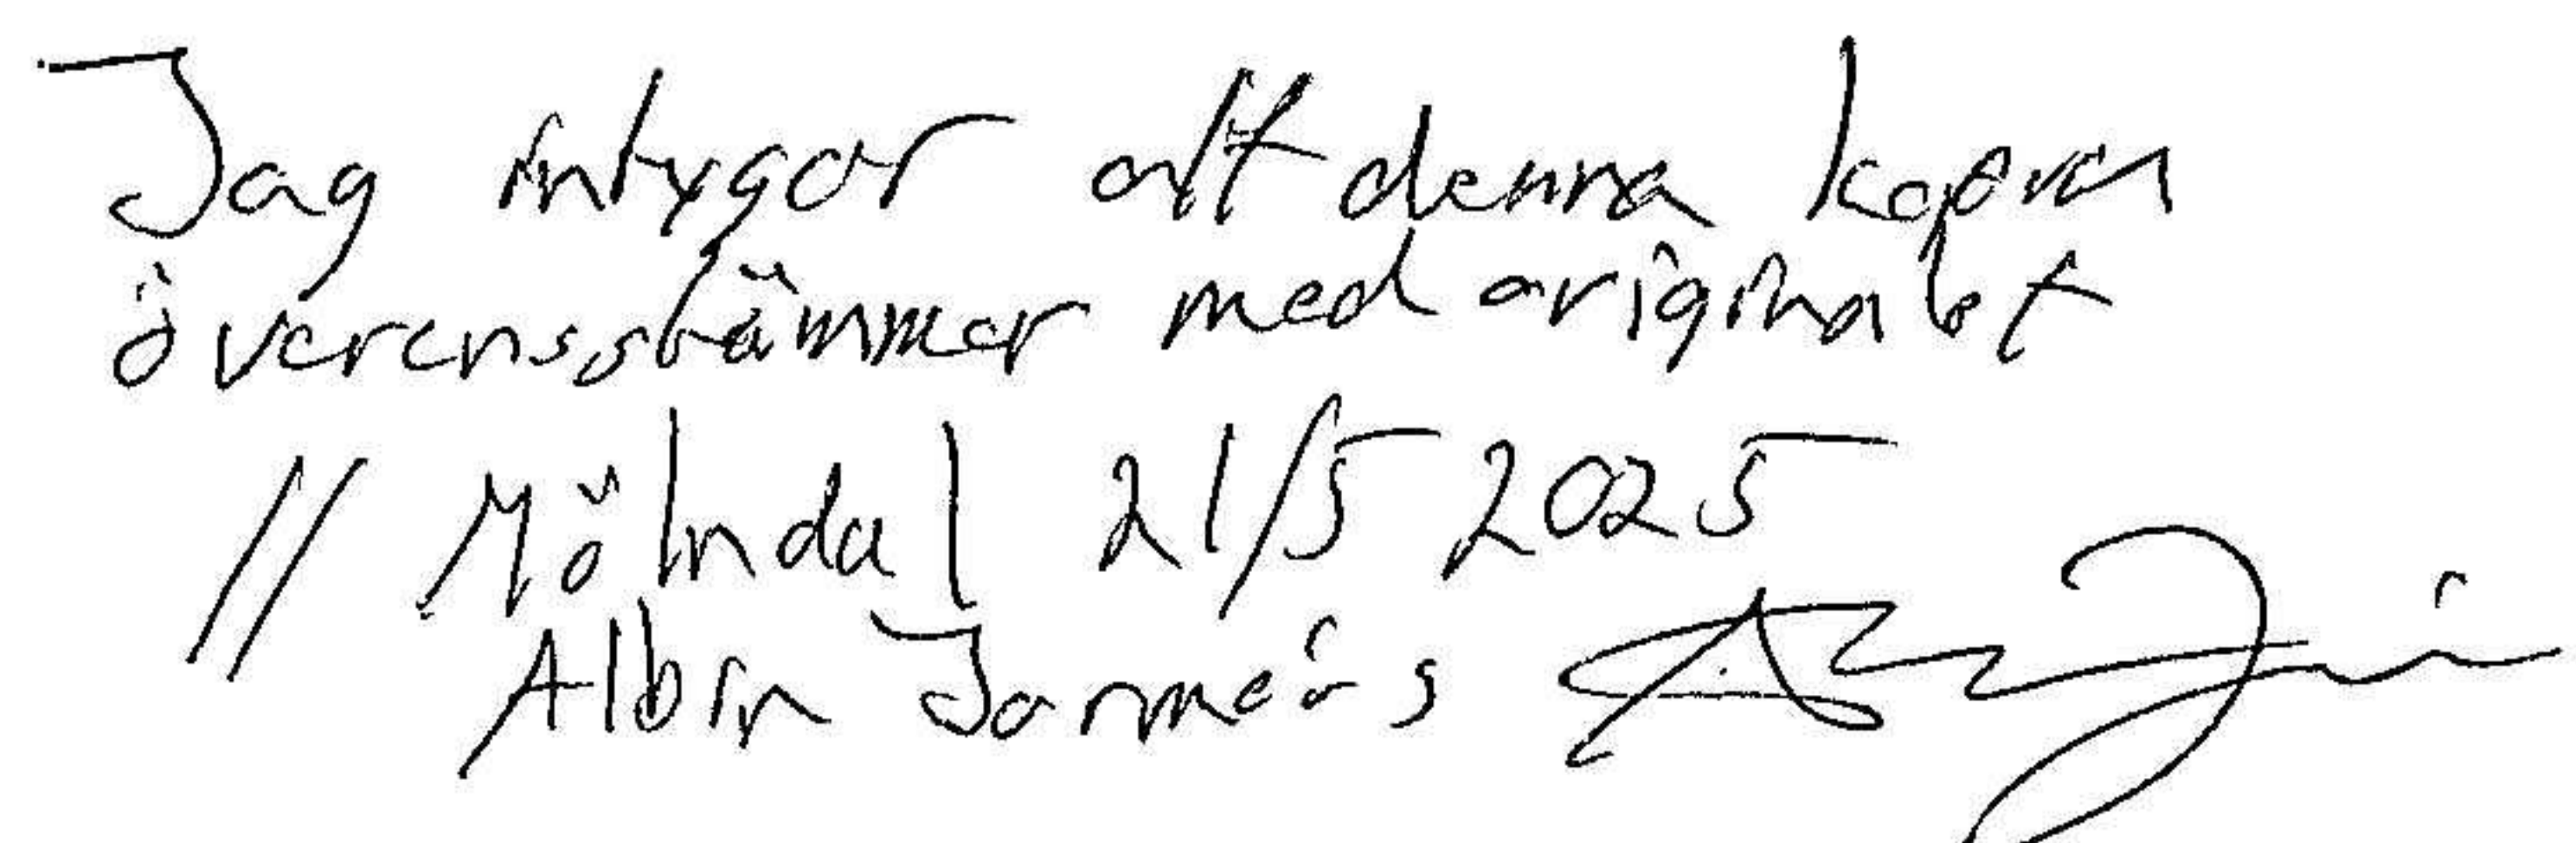 Jag intygar att denna kopia
överensstämmer med originalet
// Mölndal 21/5 2025
Albin